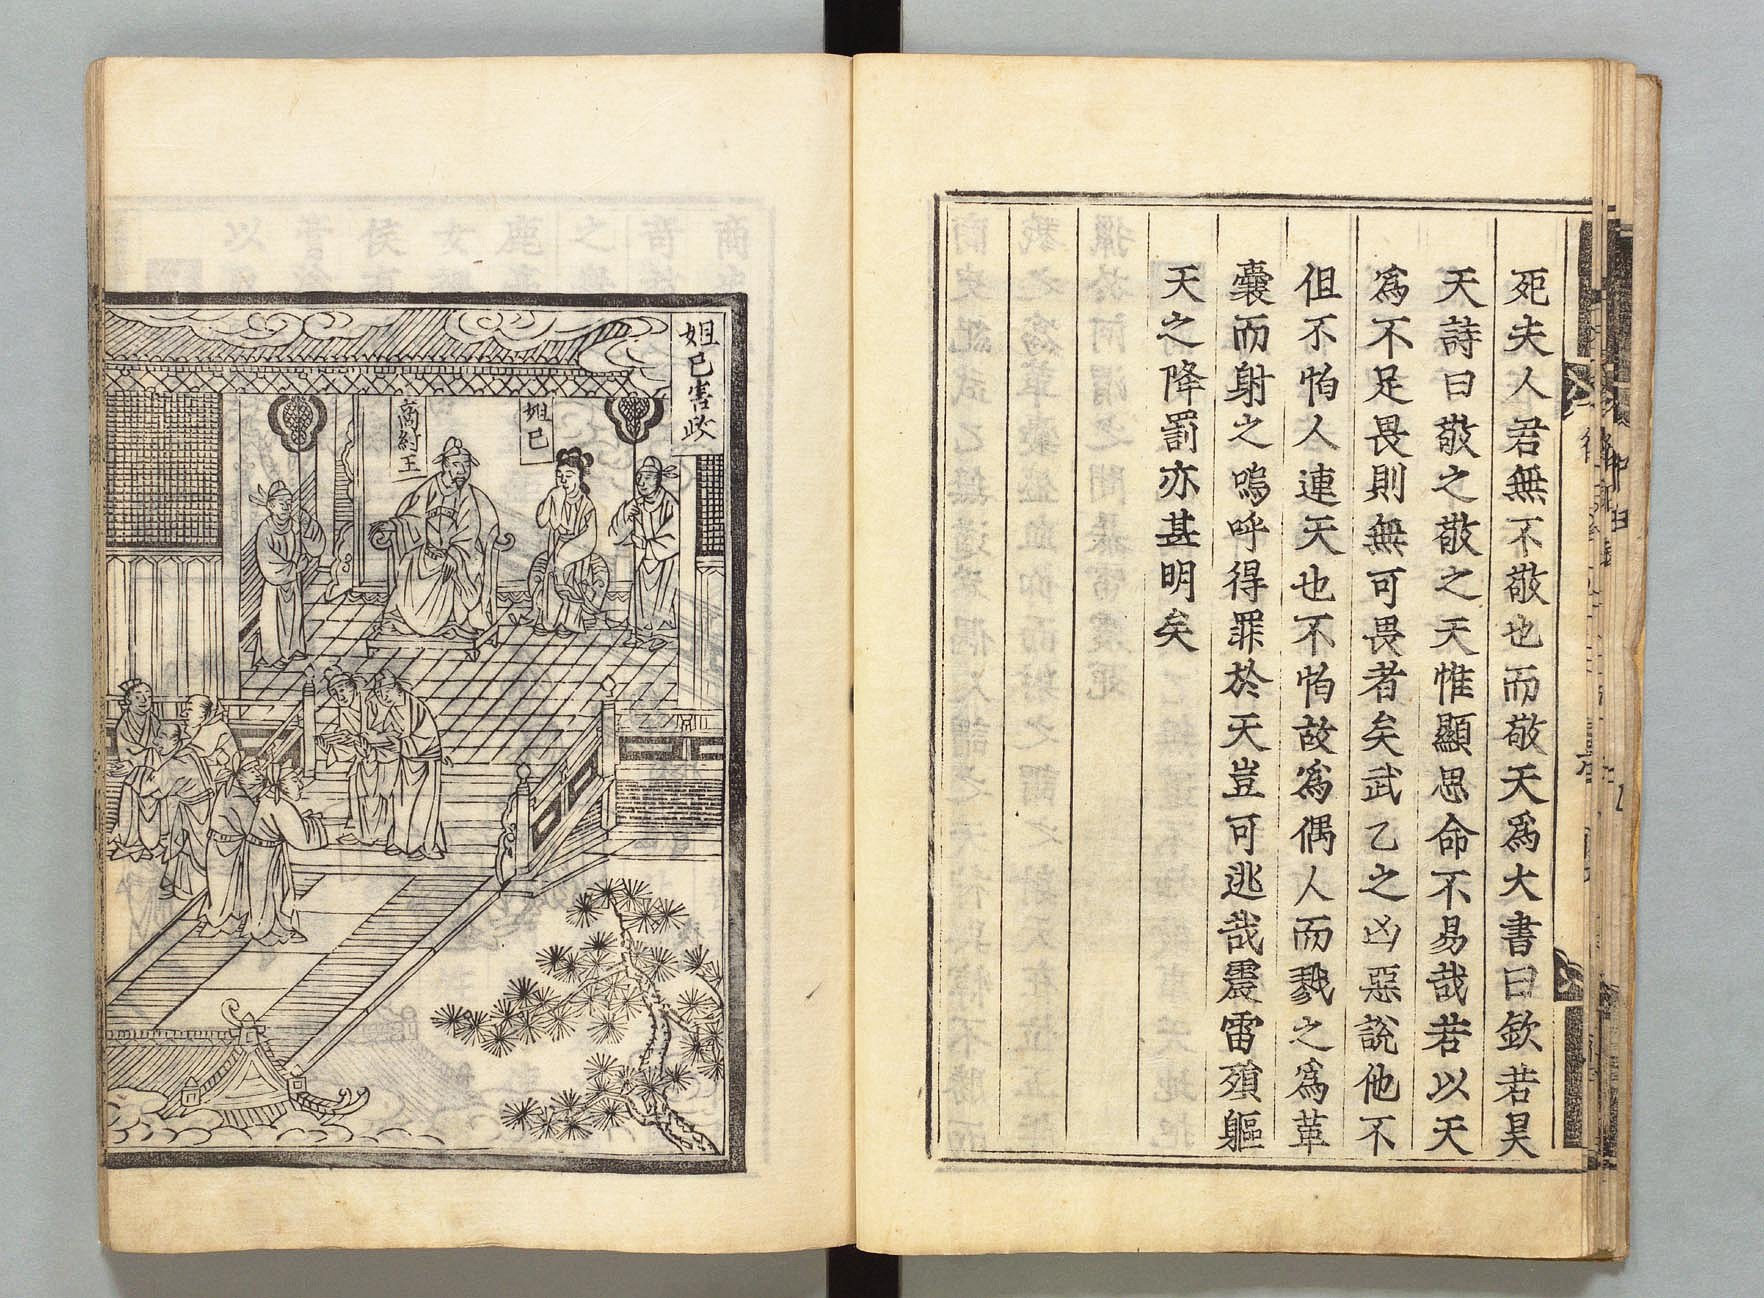 死夫人君無不敬也而敬天爲大書曰欽若昊
天詩曰敬之敬之天惟顯思命不易哉若以天
爲不足畏則無可畏者矣武乙之凶惡說他不
但不怕人連天也不怕故爲偶人而戮之爲革
囊而射之嗚呼得罪於天豈可逃哉震雷殞軀
天之降罰亦甚明矣
妲己害政
妲己
商紂王